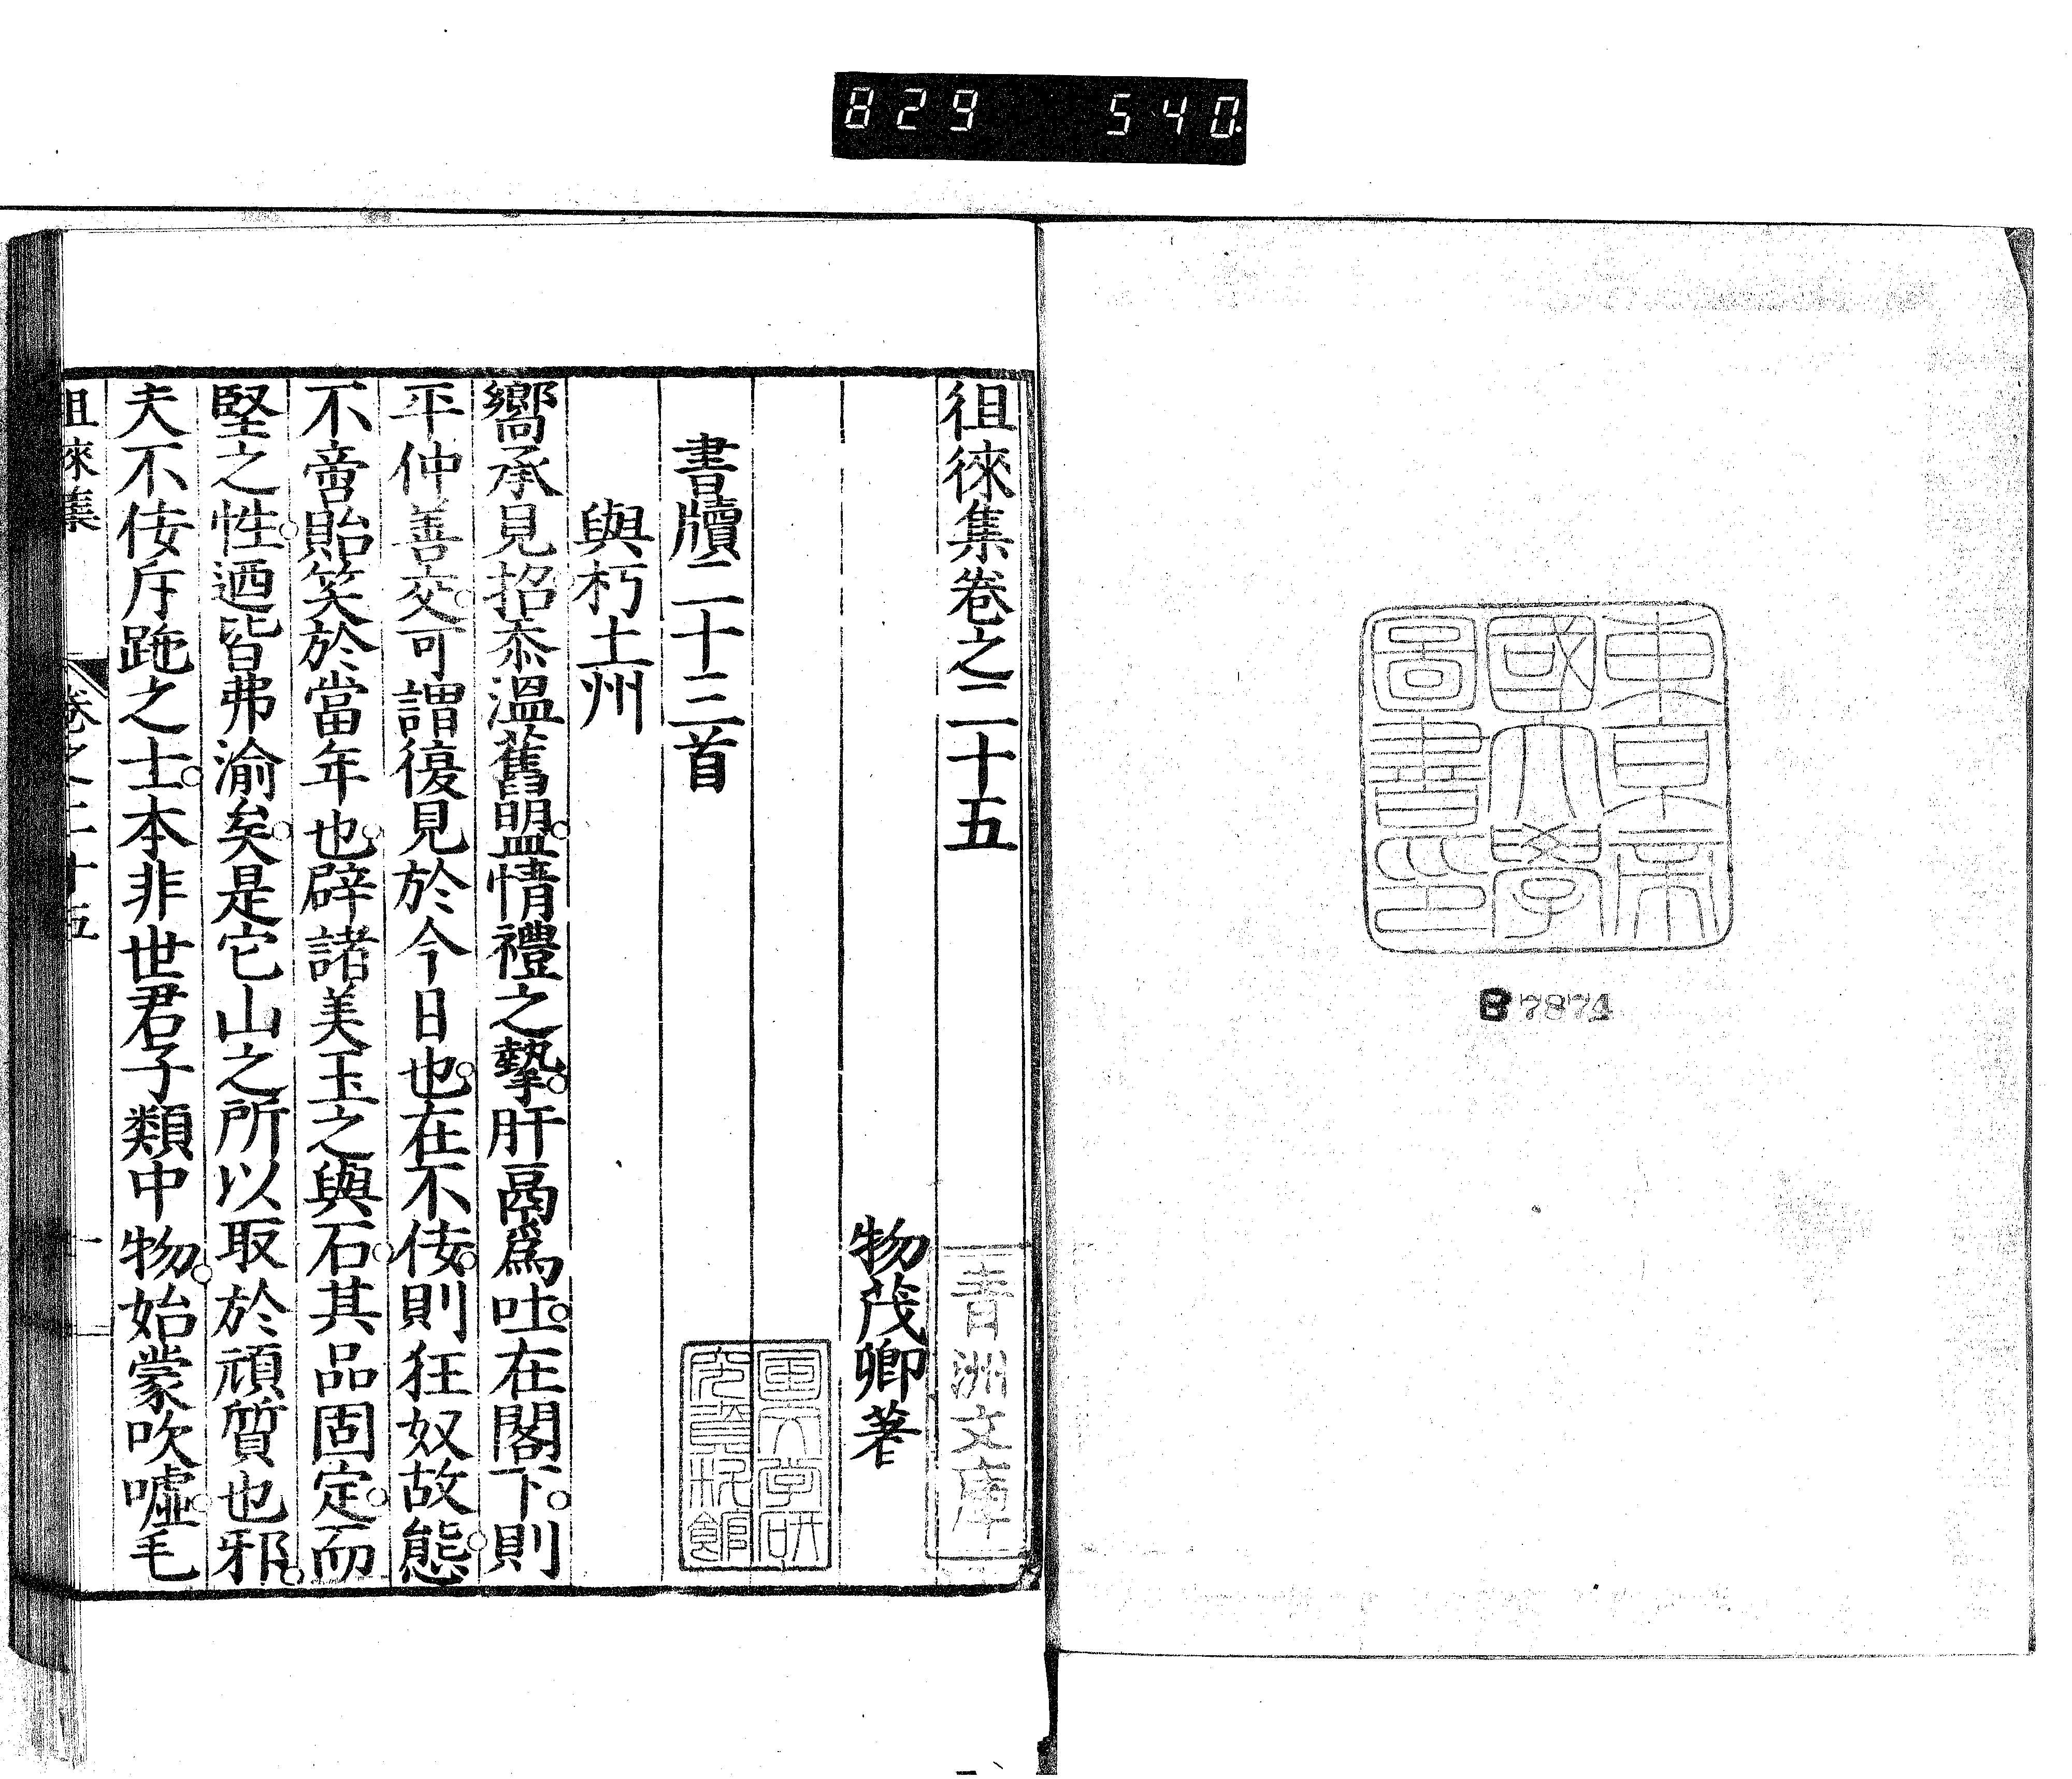 829 540
東京帝
國大學
圖書印
B7874
徂徠集卷之二十五
青洲文庫
物茂卿著
書牘二十三首
與朽土州
嚮承見招忝溫舊盟情禮之摯肝鬲爲吐在閣下則
平仲善交可謂復見於今日也在不佞則狂奴故態
不啻貽笑於當年也辟諸美玉之與石其品固定而
堅之性迺皆弗渝矣是它山之所以取於頑質也邪
夫不佞斥跅之士本非世君子類中物始蒙吹噓毛
徂徠集 卷之二十五 一